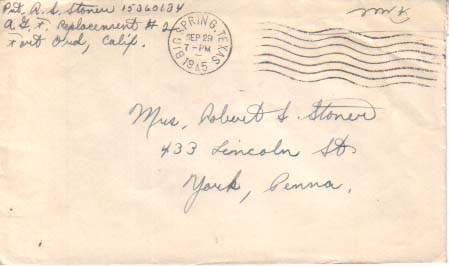 Pvt. R. S. Stoner 15360134
A.G.F. Replacement # 2
Fort Ord, Calif.
BIG SPRING, TEXAS
SEP 29
7-PM
1945
Free
Mrs. Robert S. Stoner
433 Lincoln St.
York, Penna.